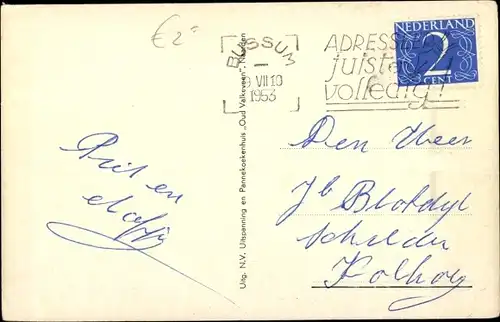 € 2
BUSSUM
9 VII 10
1953
ADRESSEER
juist en
volledig!
NEDERLAND
2
CENT
Uitg. N.V. Uitspanning en Pannekoekenhuis „Oud Valkeveen", Naarden
Den Heer
Jb Blokdyk
Schilder
Kolhorn
Piet en